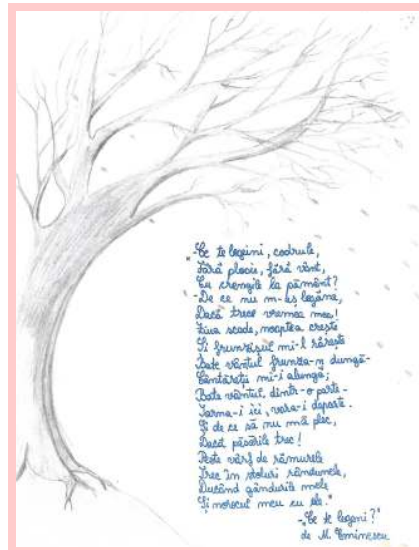 "-Ce te legeni, codrule,
Fără ploaie, fără vânt,
Cu crengile la pământ?
-De ce nu m-aș legăna,
Dacă trece vremea mea!
Ziua scade, noaptea crește
Și frunzișul mi-l rărește
Bate vântul frunza-n dungă-
Cântăreții mi-i alungă;
Bate vântul dintr-o parte-
Iarna-i ici, vara-i departe.
Și de ce să nu mă plec,
Dacă păsările trec!
Peste vârf de rămurele
Trec în stoluri rândunele,
Ducând gândurile mele
Și norocul meu cu ele."
-„Ce te legeni?"
de M. Eminescu